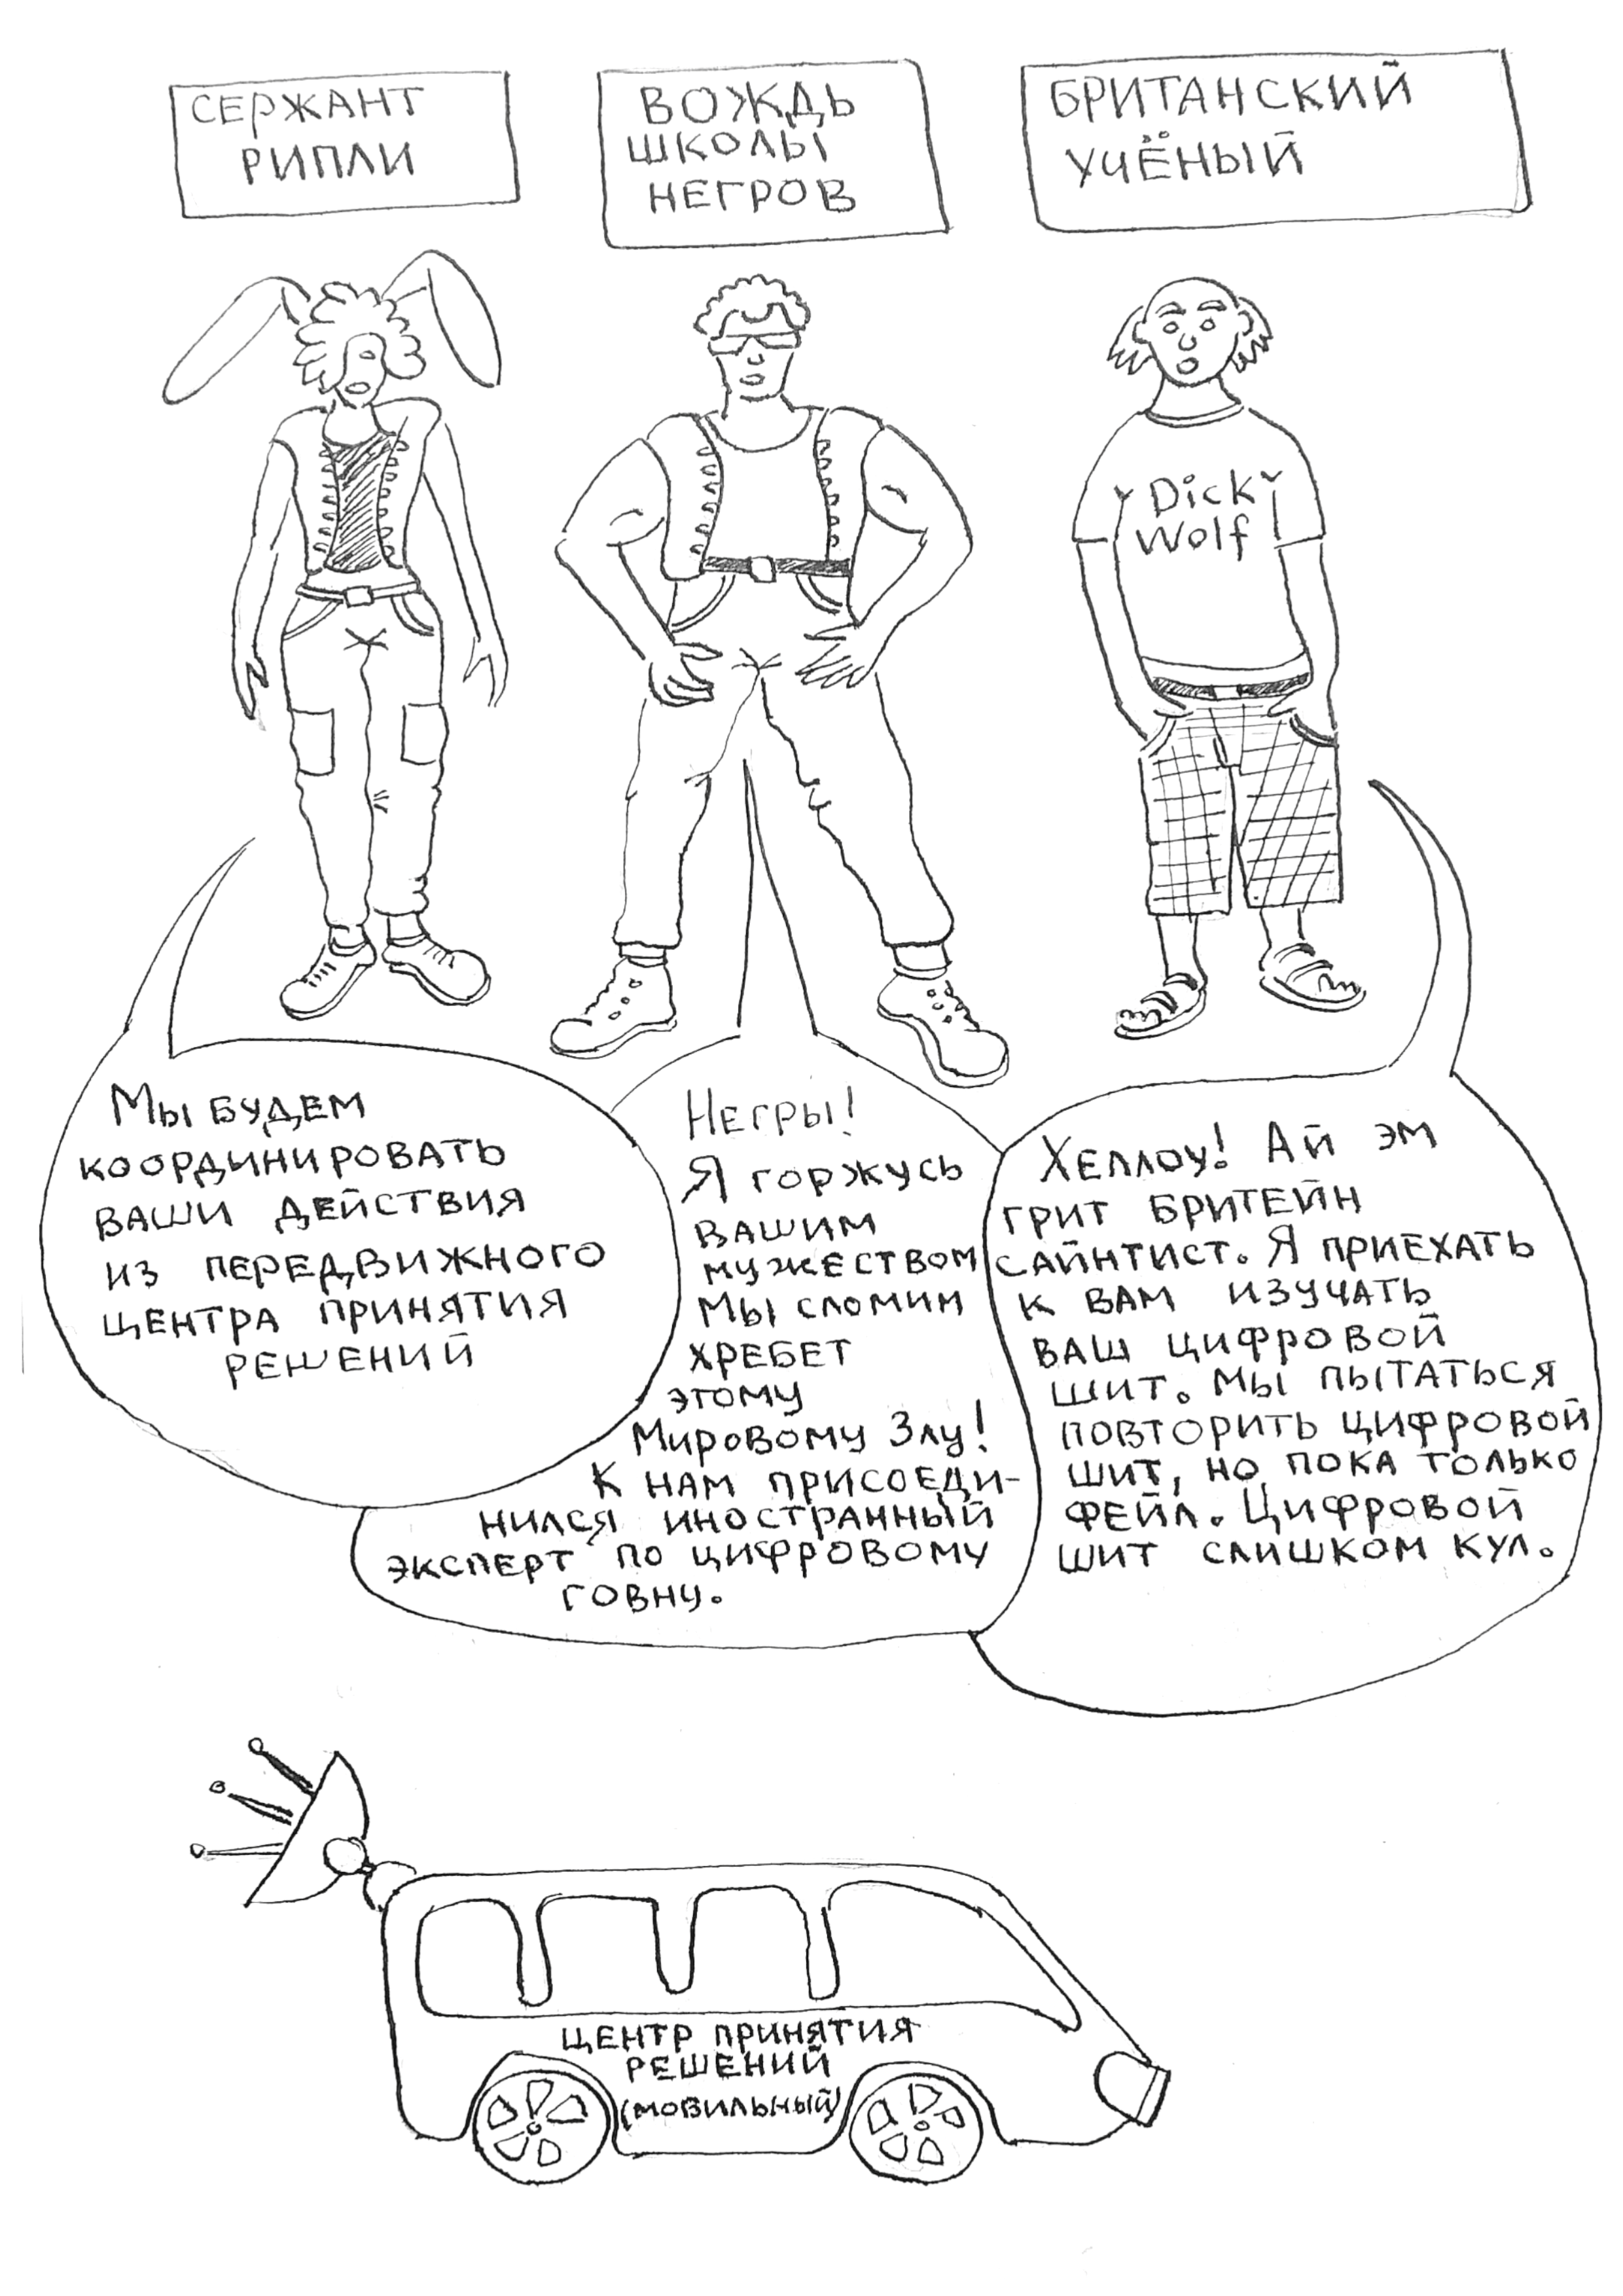 СЕРЖАНТ
РИПЛИ
ВОЖДЬ
ШКОЛЫ
НЕГРОВ
БРИТАНСКИЙ
УЧЁНЫЙ
Dick
Wolf
Мы БУДЕМ
КООРДИНИРОВАТЬ
ВАШИ ДЕЙСТВИЯ
ИЗ ПЕРЕДВИЖНОГО
ЦЕНТРА ПРИНЯТИЯ
РЕШЕНИЙ
НЕГРЫ!
Я ГОРЖУСЬ
ВАШИМ
МУЖЕСТВОМ
МЫ СЛОМИМ
ХРЕБЕТ
ЭТОМУ
МИРОВОМУ ЗЛУ!
К НАМ ПРИСОЕДИ-
НИЛСЯ ИНОСТРАННЫЙ
ЭКСПЕРТ ПО ЦИФРОВОМУ
ГОВНУ.
ХЕЛЛОУ! АЙ ЭМ
ГРИТ БРИТЕЙН
САЙНТИСТ. Я ПРИЕХАТЬ
К ВАМ ИЗУЧАТЬ
ВАШ ЦИФРОВОЙ
ШИТ. МЫ ПЫТАТЬСЯ
ПОВТОРИТЬ ЦИФРОВОЙ
ШИТ, НО ПОКА ТОЛЬКО
ФЕЙЛ. ЦИФРОВОЙ
ШИТ СЛИШКОМ КУЛ.
ЦЕНТР ПРИНЯТИЯ
РЕШЕНИЙ
(МОБИЛЬНЫЙ)